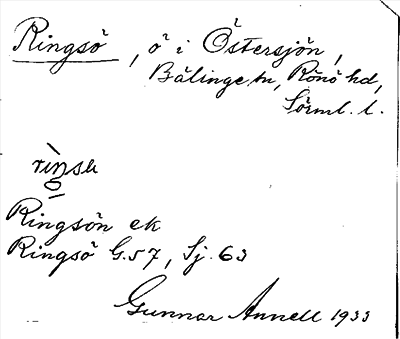 Ringsö, ö i Östersjön,
Bälinge sn, Rönö hd,
Sörml. l.
Ringsön ek
Ringsö G.57, Sj. 63
Gunnar Annell 1933